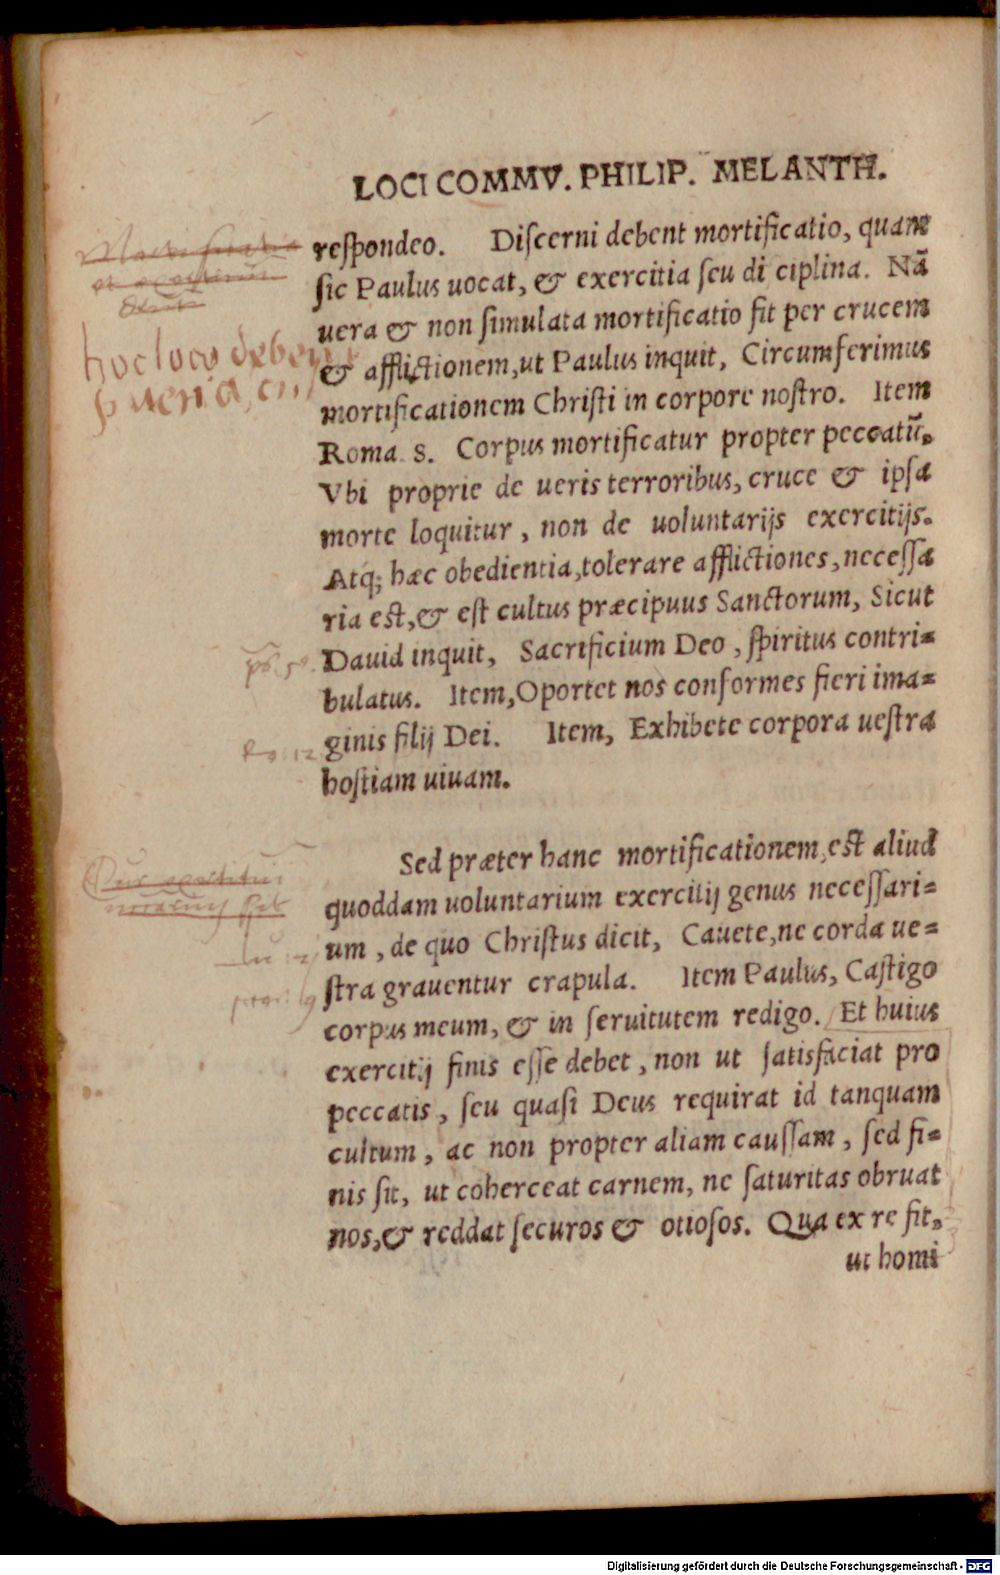 LOCI COMMV. PHILIP. MELANTH.
reſpondeo. Diſcerni debent mortificatio, quam
ſic Paulus uocat, & exercitia ſeu di ciplina. Nã
uera & non ſimulata mortificatio fit per crucem
& afflictionem, ut Paulus inquit, Circumferimus
mortificationem Chriſti in corpore noſtro. Item
Roma 8. Corpus mortificatur propter peccatũ.
Vbi proprie de ueris terroribus, cruce & ipſa
morte loquitur, non de uoluntarijs exercitijs.
Atq; hæc obedientia, tolerare afflictiones, neceſſa
ria eſt, & eſt cultus præcipuus Sanctorum, Sicut
Dauid inquit, Sacrificium Deo, ſpiritus contri=
bulatus. Item, Oportet nos conformes fieri ima=
ginis filij Dei. Item, Exhibete corpora ueſtra
hoſtiam uiuam.
Sed præter hanc mortificationem, eſt aliud
quoddam uoluntarium exercitij genus neceſſari=
um, de quo Chriſtus dicit, Cauete, ne corda ue=
ſtra grauentur crapula. Item Paulus, Caſtigo
corpus meum, & in ſeruitutem redigo. Et huius
exercitij finis eſſe debet, non ut ſatisfaciat pro
peccatis, ſeu quaſi Deus requirat id tanquam
cultum, ac non propter aliam cauſſam, ſed fi=
nis ſit, ut coherceat carnem, ne ſaturitas obruat
nos, & reddat ſecuros & otioſos. Qua ex re fit,
ut homi
hoc loco deben
ps. 50.
Ro: 12
Digitalisierung gefördert durch die Deutsche Forschungsgemeinschaft - DFG